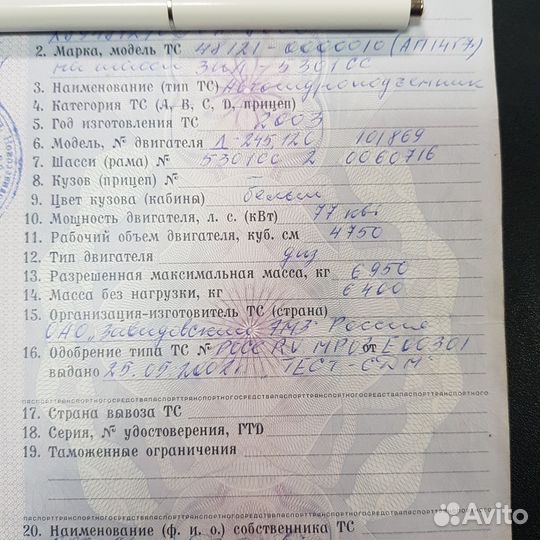 2. Марка, модель ТС 48121-0000010 (АП17
на шасси ЗИЛ-5301СС
3. Наименование (тип ТС) Автогидроподъемник
4. Категория ТС (А, В, С, D, прицеп)
5. Год изготовления ТС 2003
6. Модель, № двигателя Д-245.12С 101869
7. Шасси (рама) № 5301СС 2 0060716
8. Кузов (прицеп) №
9. Цвет кузова (кабины) белый
10. Мощность двигателя, л. с. (кВт) 77 квт
11. Рабочий объем двигателя, куб. см 4750
12. Тип двигателя диз
13. Разрешенная максимальная масса, кг 6950
14. Масса без нагрузки, кг 6400
15. Организация-изготовитель ТС (страна)
ОАО "Завидовский ЭМЗ" Россия
16. Одобрение типа ТС № РОСС RU МР03 от Е00301
выдано 25.05.2002г "ТЕСТ-СДМ"
17. Страна вывоза ТС
18. Серия, № удостоверения, ГТD
19. Таможенные ограничения
20. Наименование (ф. и. о.) собственника ТС
Avito